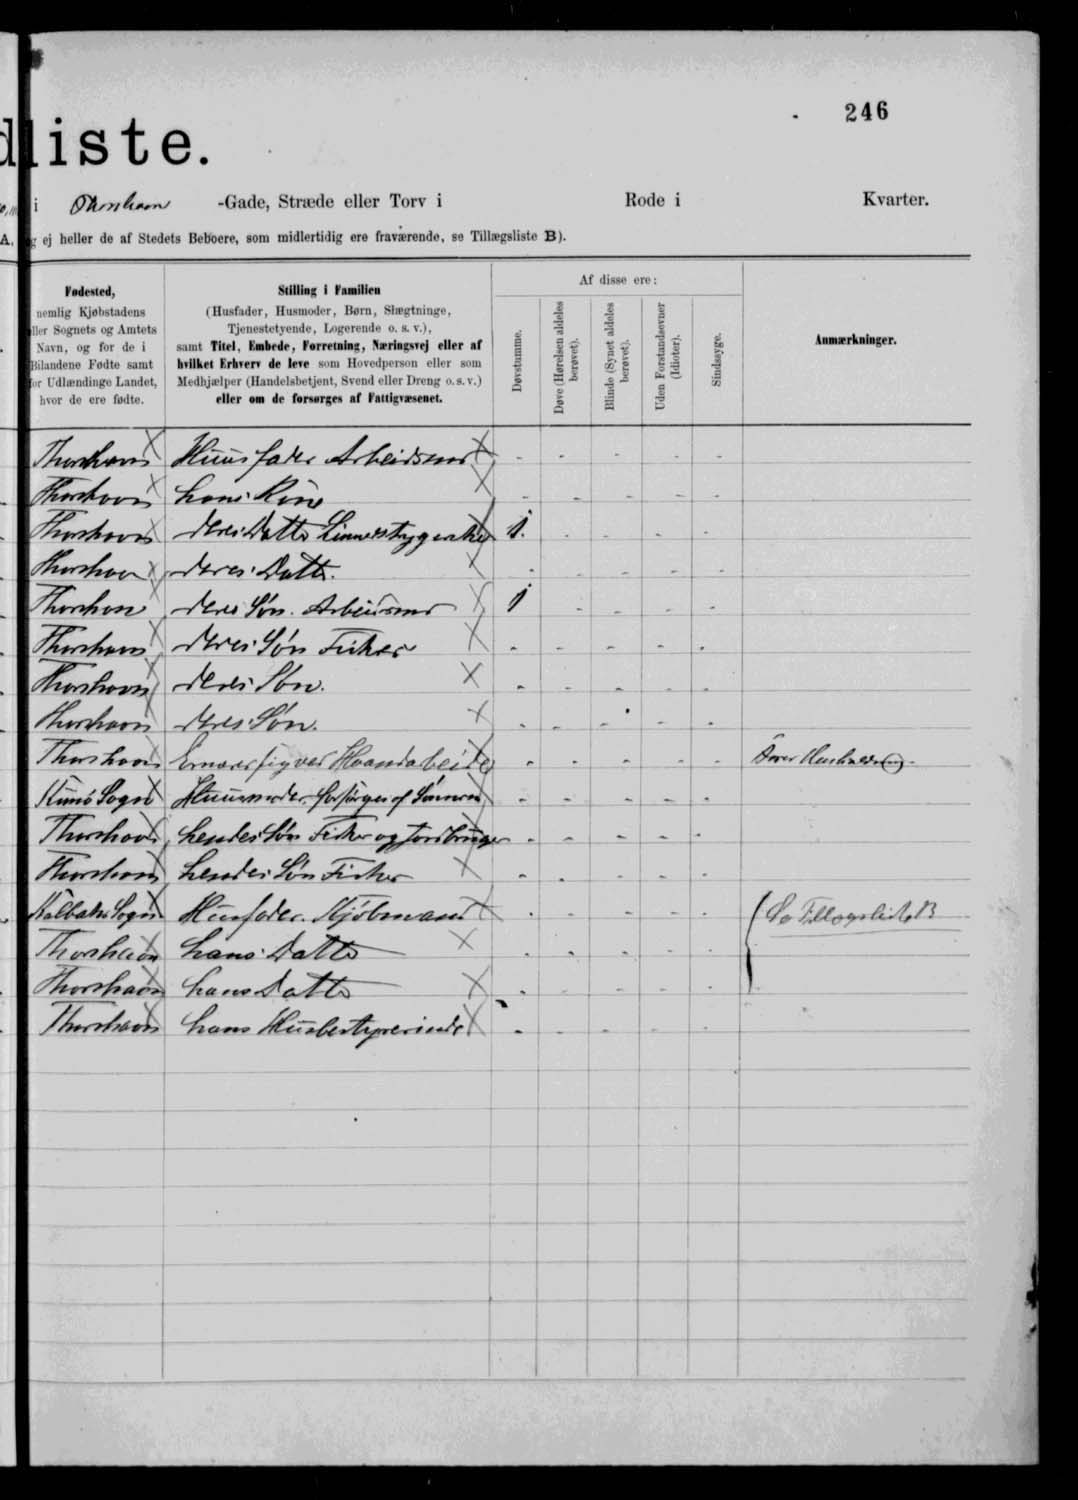 246
liste.
i Thorshavn -Gade, Stræde eller Torv i Rode i Kvarter.
A, og ej heller de af Stedets Beboere, som midlertidig ere fraværende, se Tillægsliste B).
Fødested,
nemlig Kjøbstadens
eller Sognets og Amtets
Navn, og for de i
Bilandene Fødte samt
for Udlændinge Landet,
hvor de ere fødte.
Stilling i Familien
(Husfader, Husmoder, Børn, Slægtninge,
Tjenestetyende, Logerende o. s. v.),
samt Titel, Embede, Forretning, Næringsvej eller af
hvilket Erhverv de leve som Hovedperson eller som
Medhjælper (Handelsbetjent, Svend eller Dreng o.s.v.)
eller om de forsørges af Fattigvæsenet.
Af disse ere:
Døvstumme.
Døve (Hørelsen aldeles
berøvet).
Blinde (Synet aldeles
berøvet).
Uden Forstandsevner
(Idioter).
Sindssyge.
Anmærkninger.
Thorshavn Huusfader Arbeidsmd - - - - -
Thorshavn hans Kone - - - - -
Thorshavn deres Datter 1. - - - -
Thorshavn deres Datter. - - - - -
Thorshavn deres Søn. Arbeidsmd 1 - - - -
Thorshavn deres Søn Fisker - - - - -
Thorshavn deres Søn. - - - - -
Thorshavn deres Søn. - - - - -
Thorshavn Ernærer sig ved Haandarbeide - - - - -
Kunø Sogn Huusmoder, forsørges af Sønnen - - - - -
Thorshavn hendes Søn Fisker og Jordbruger - - - - -
Thorshavn hendes Søn Fisker - - - - -
Kalbaks Sogn Husfader. Kjøbmand Se Tillægsliste B
Thorshavn hans Datter - - - - -
Thorshavn hans Datter - - - - -
Thorshavn hans Husbestyrerinde - - - - -